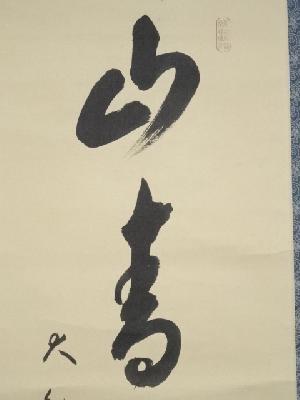 山青
大